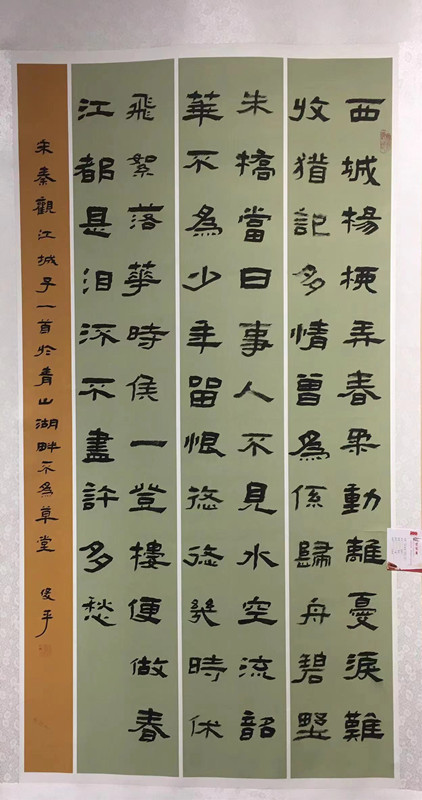 西城楊柳弄春柔動離憂淚難
收猶記多情曾為係歸舟碧墅
朱橋當日事人不見水空流韶
華不為少年留恨悠悠幾時休
飛絮落華時候一登樓便做春
江都是泪流不盡許多愁
宋秦觀江城子一首於青山湖畔不為草堂 俊平